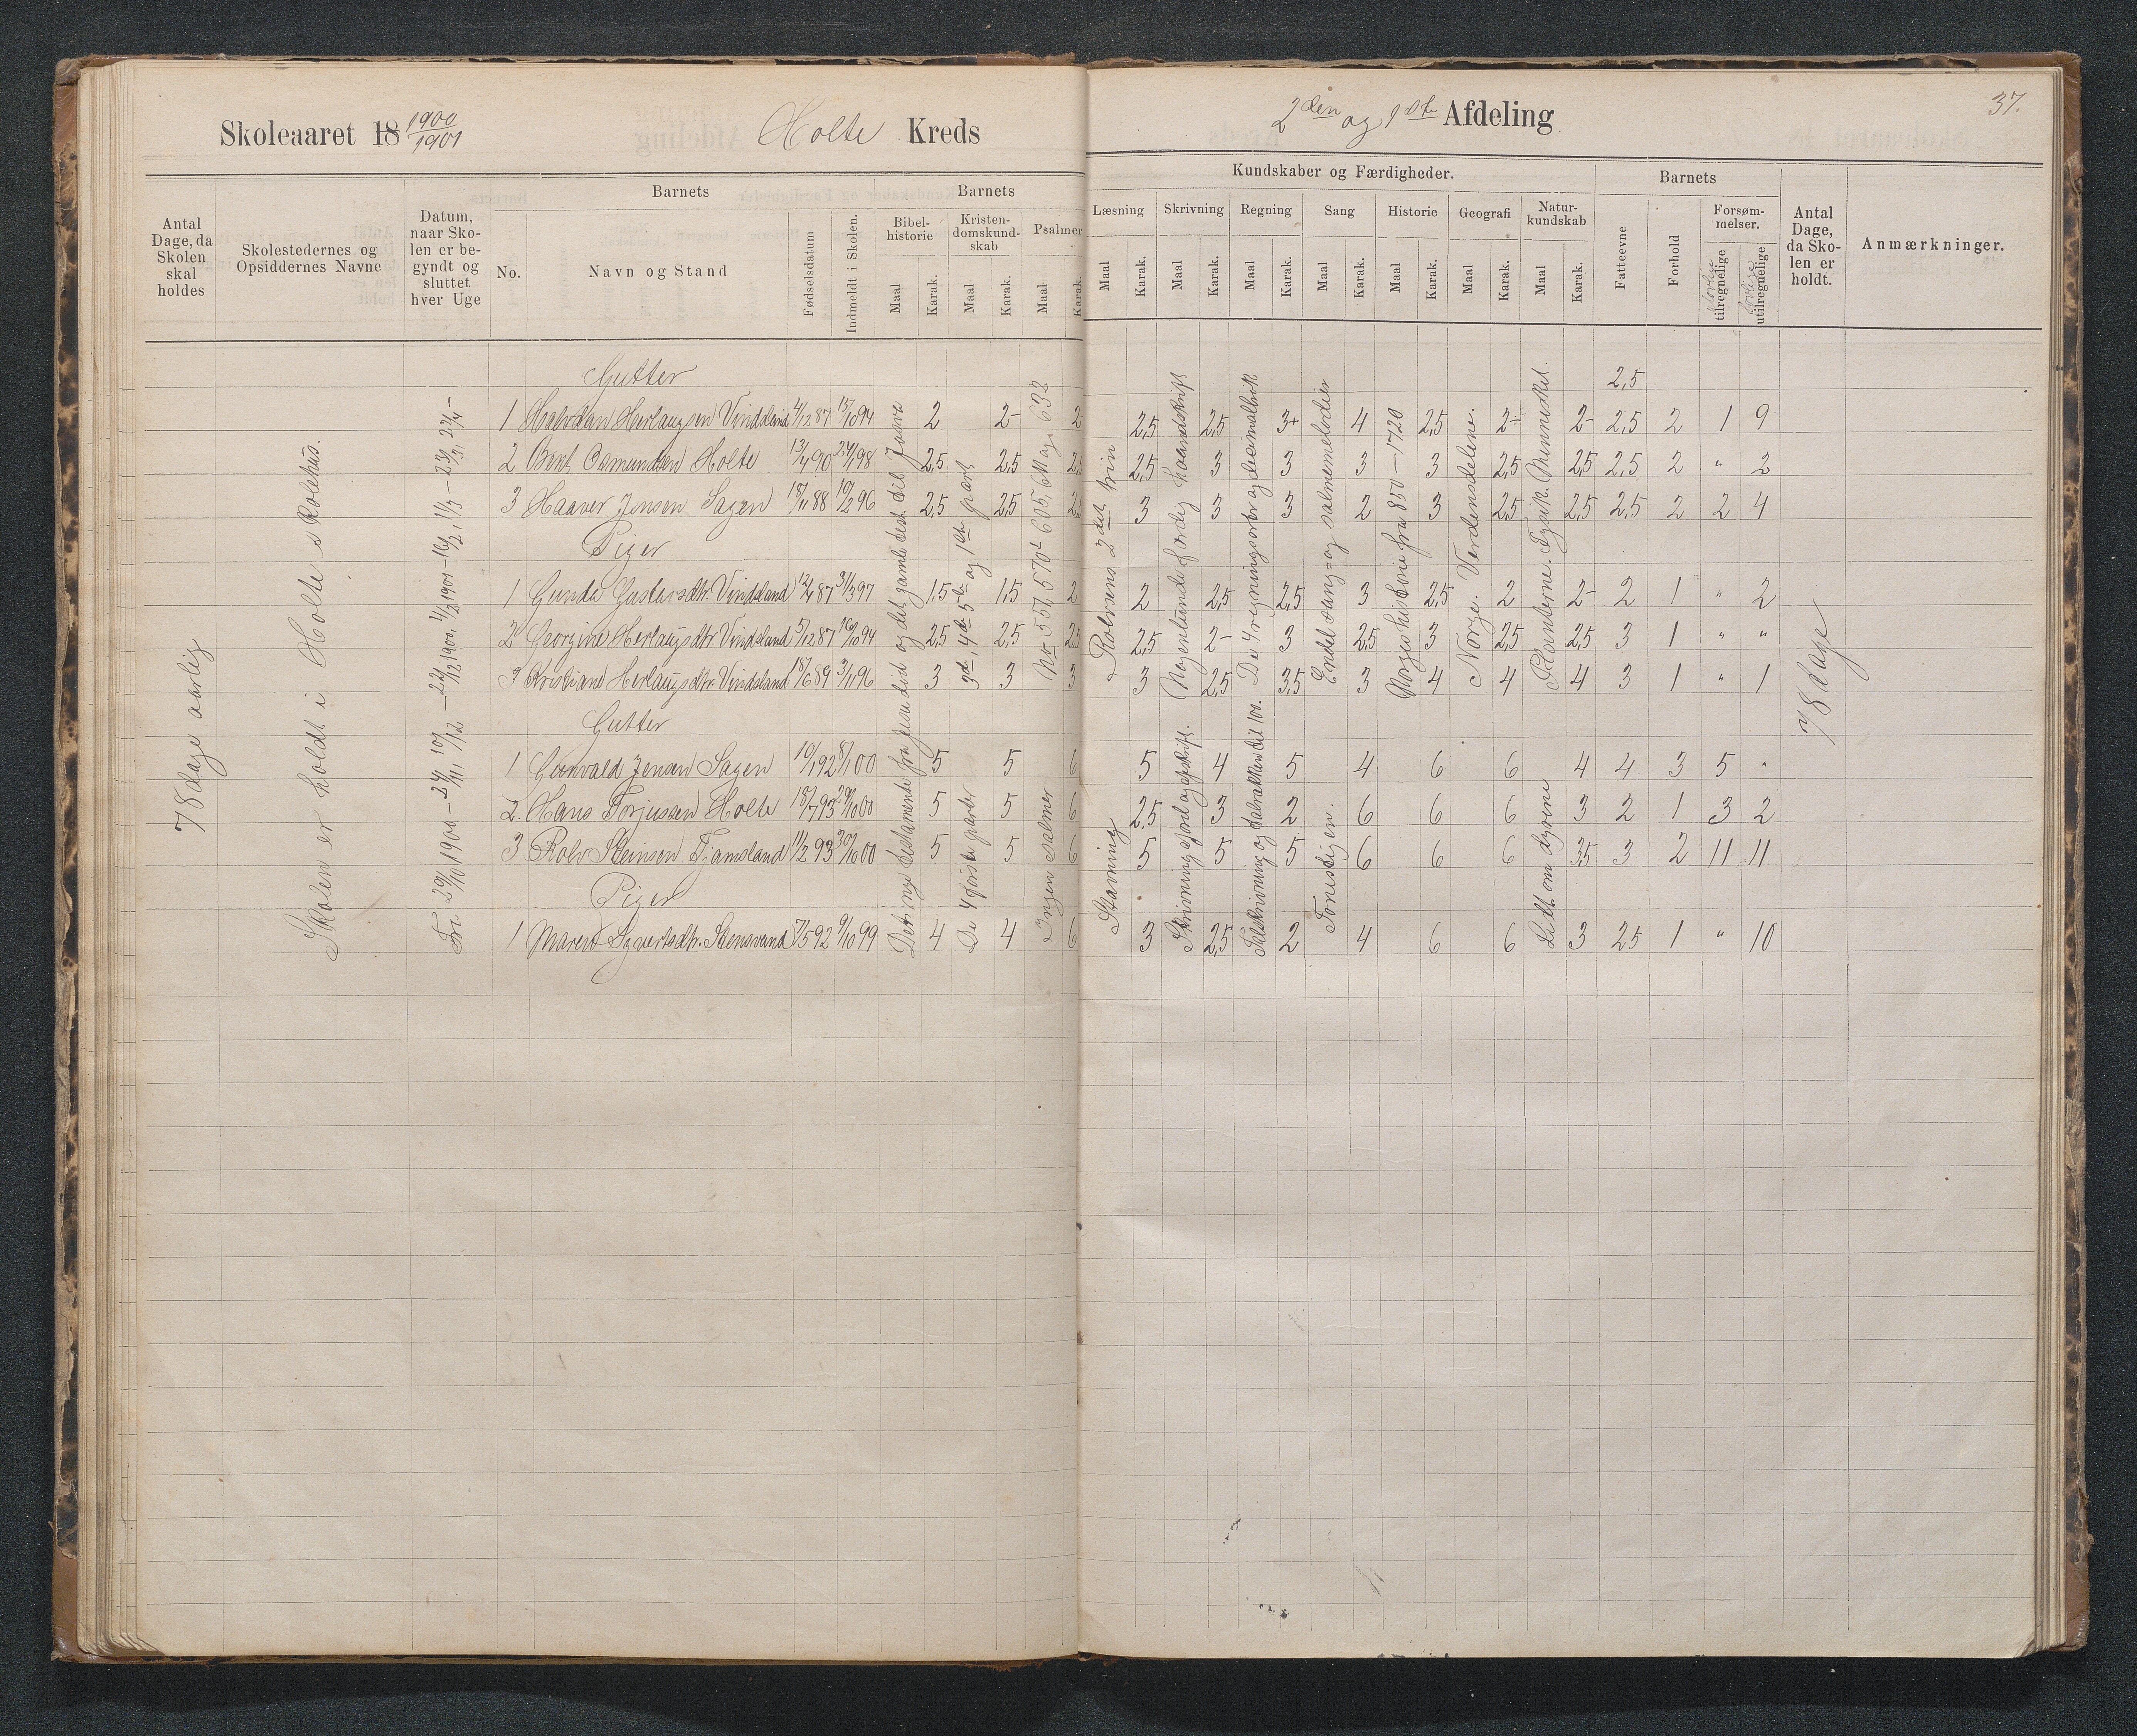 Skoleaaret 18 1900/1901
Holte Kreds
2den og 1ste Afdeling
37.
Antal Dage, da Skolen skal holdes
Skolestedernes og Opsiddernes Navne
Datum, naar Skolen er begyndt og sluttet hver Uge
Barnets
No.
Navn og Stand
Fødselsdatum
Indmeldt i Skolen.
Barnets
Bibelhistorie
Kristendomskundskab
Psalmer
Maal Karak. Maal Karak. Maal Karak.
Kundskaber og Færdigheder.
Læsning Skrivning Regning Sang Historie Geografi Naturkundskab
Maal Karak. Maal Karak. Maal Karak. Maal Karak. Maal Karak. Maal Karak. Maal Karak.
Barnets
Fatteevne
Forhold
Forsømmelser.
tilregnelige
utilregnelige
Antal Dage, da Skolen er holdt.
Anmærkninger.
78 dage aarlig
Skolen er holdt i Holte skolehus.
Det nye testamente fra jesu død og det gamle test. til Josva
3die, 4de, 5te og 1ste part
Rolvsens 2det trin
Nogenlunde færdig haandskrift
De 4 regningsarter og decimalbrøk
Endel sang= og salmemelodier
Norges historie fra 850–1720
Norge. Verdensdelene.
Planterne. Fysik. Mennesket.
78 dage
Gutter
2,5
1 Halvdan Herlaugsen Vindsland 4/12 87 15/10 94 2 2- 2 2,5 2,5 3+ 4 2,5 2- 2- 2,5 2 1 9
2 Bent Osmundsen Holte 13/4 90 24/1 98 2,5 2,5 2,5 2,5 3 3 3 3 2,5 2,5 2,5 2 " 2
3 Haaver Jensen Sagen 18/11 88 10/2 96 2,5 2,5 2,5 3 3 3 2 3 2,5 2,5 2,5 2 2 4
Piger
1 Gunda Gustavsdtr. Vindsland 12/4 87 31/3 97 1,5 1,5 2 2 2,5 2,5 3 2,5 2 2- 2 1 " 2
2 Georgine Herlaugsdtr Vindsland 5/12 87 16/10 94 2,5 2,5 2,5 2,5 2- 3 2,5 3 2,5 2,5 3 1 " "
3 Kristiane Herlaugsdtr. Vindsland 18/6 89 3/11 96 3 3 3 3 2,5 3,5 3 4 4 4 3 1 " 1
Gutter
De 4 første parter
Ingen salmer
Stavning
Skrivning af ord og afskrift.
Talskrivning og talrækken til 100.
Litt om dyrene
1 Gunvald Jensen Sagen 10/1 92 8/1 00 5 5 6 5 4 5 4 6 6 4 4 3 5 "
2 Hans Torjussen Holte 18/7 93 29/10 00 5 5 6 2,5 3 2 6 6 6 3 2 1 3 2
3 Rolv Steinsen Tjamsland 11/2 93 30/10 00 5 5 6 5 5 5 6 6 6 3,5 3 2 11 11
Piger
1 Maren Syvertsdtr. Stensvand 7/5 92 9/10 99 4 4 6 3 2,5 2 4 6 6 3 2,5 1 " 10